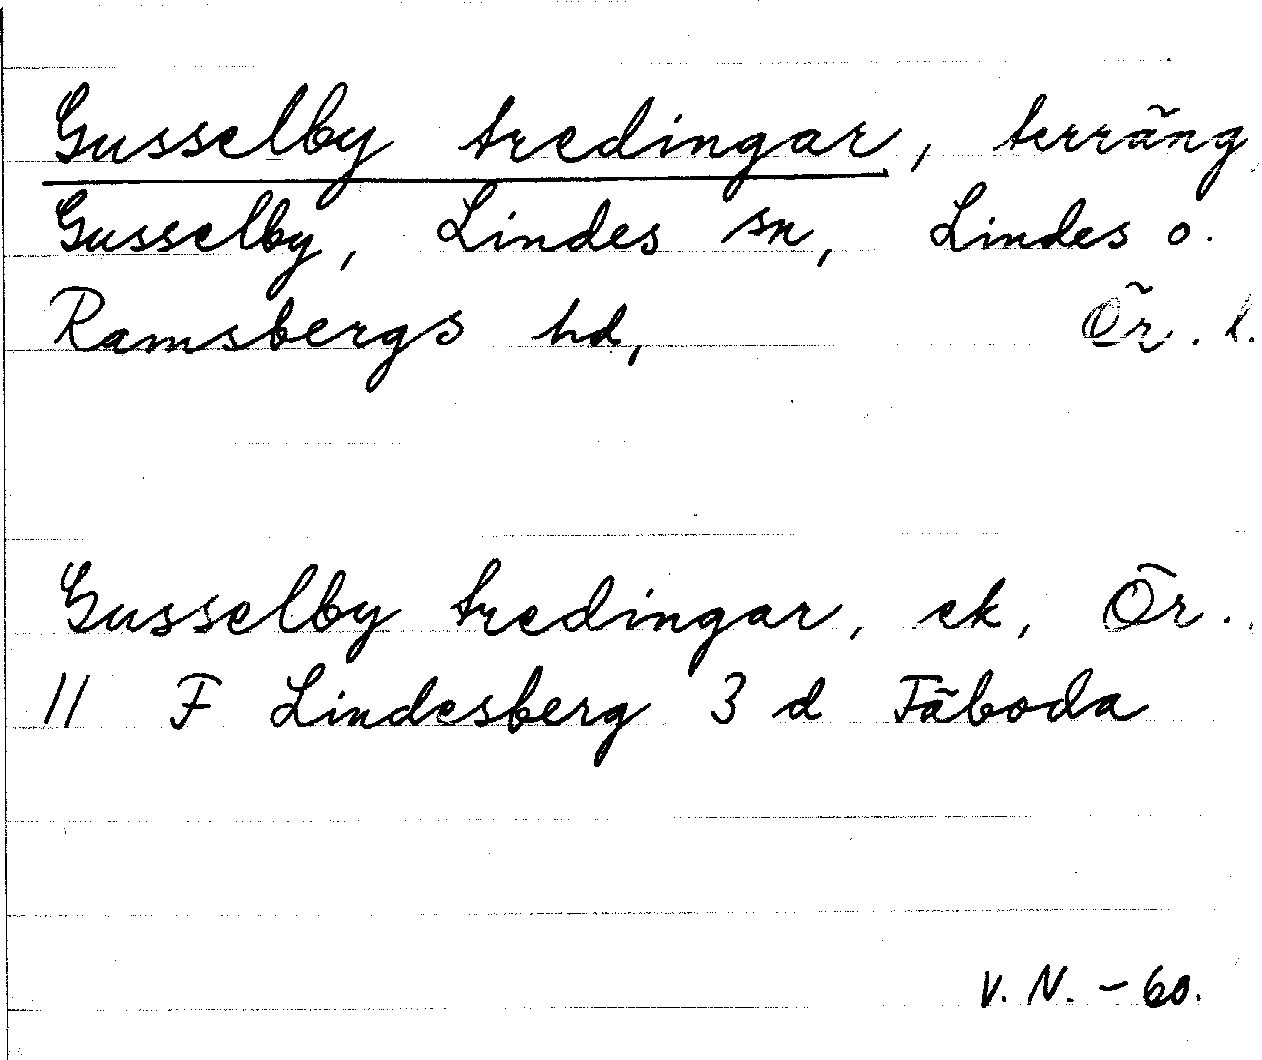 Gusselby tredingar, terräng
Gusselby, Lindes sn, Lindes o.
Ramsbergs hd, Ör. l.
Gusselby tredingar, ek, Ör.
11 F Lindesberg 3 d Fäboda
V. N. - 60.